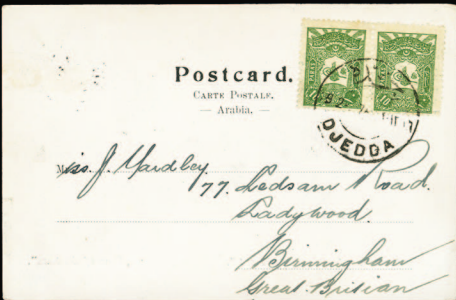 Postcard.
CARTE POSTALE.
— Arabia. —
DJEDDA
10
Miss. J. Yardley.
77. Ledsam Road.
Ladywood.
Birmingham
Great Britian